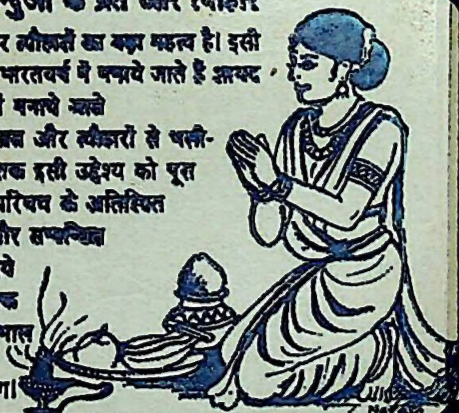 के व्रत और त्यौहार
र त्यौहारों का बड़ा महत्व है। इसी
भारतवर्ष में मनाये जाते हैं शायद
मनाये जाने
और त्यौहारों से भली-
इसी उद्देश्य को पूरा
परिचय के अतिरिक्त
और सम्बन्धित
ये